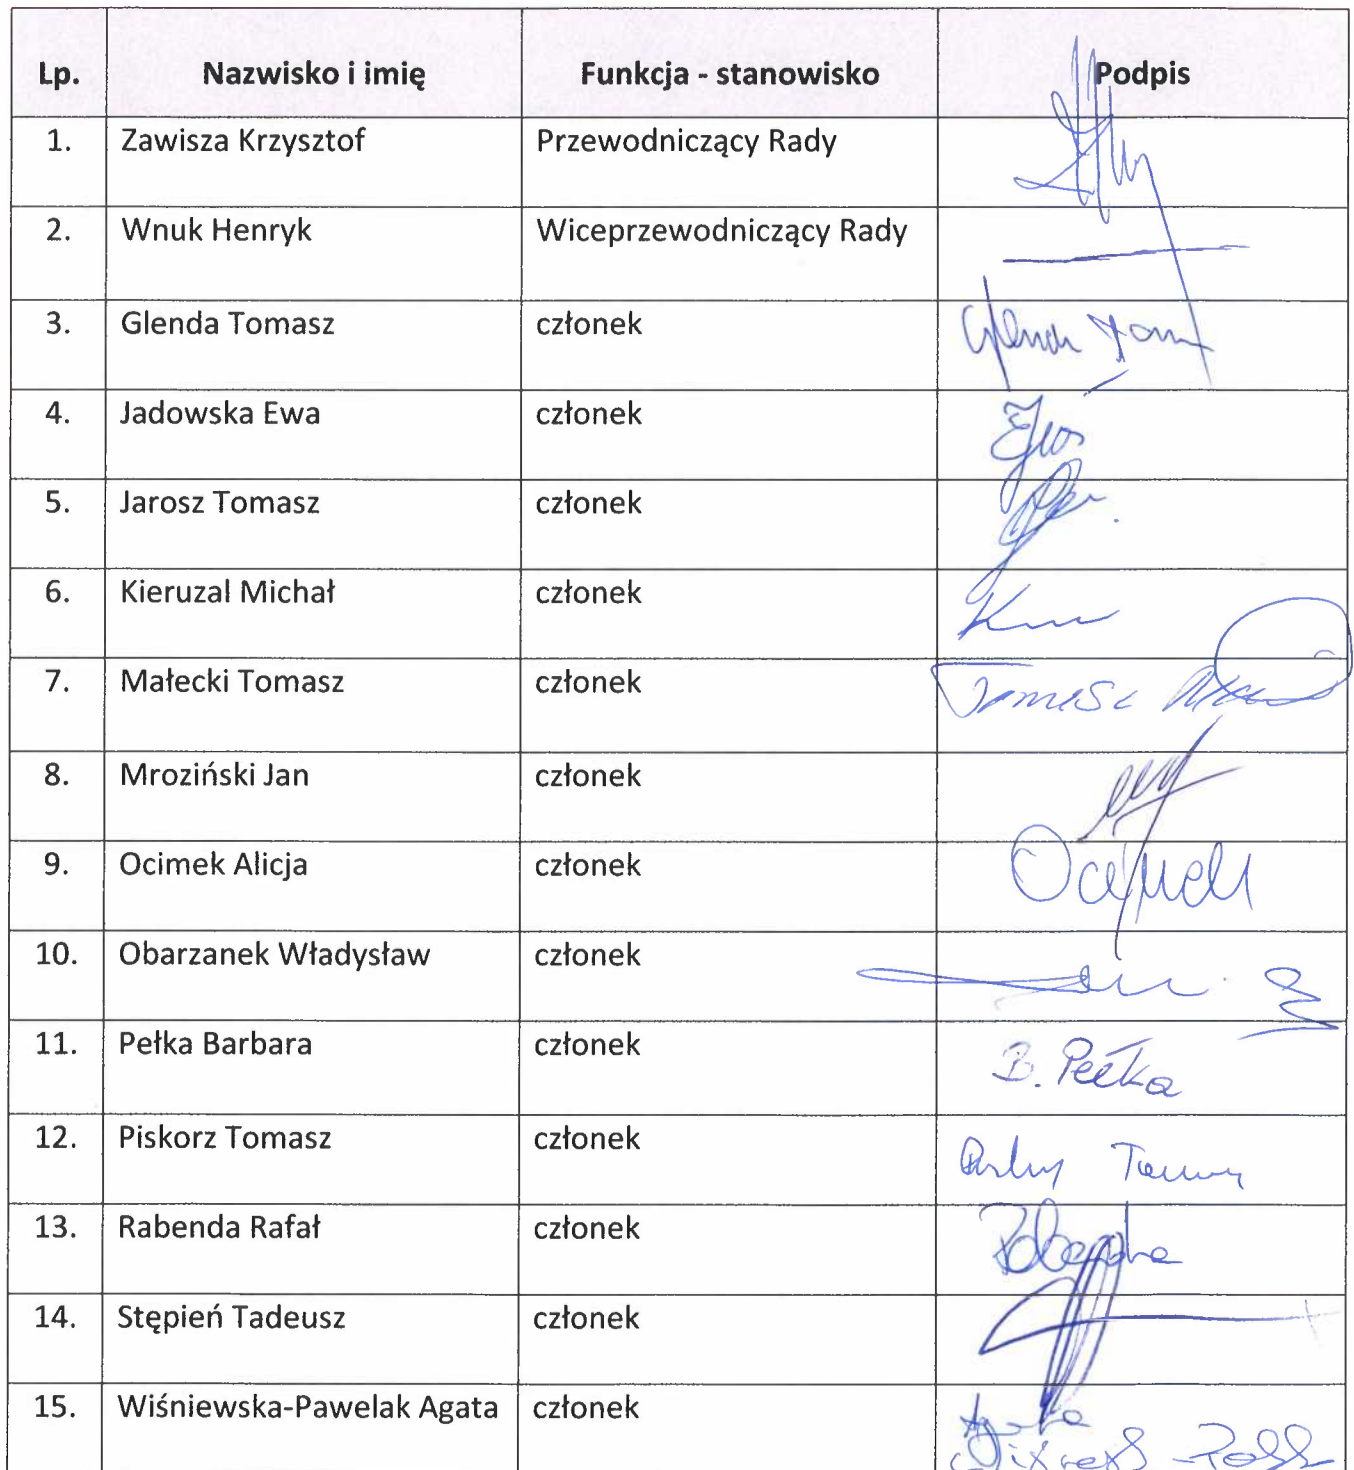 Lp. Nazwisko i imię Funkcja - stanowisko Podpis
1. Zawisza Krzysztof Przewodniczący Rady
2. Wnuk Henryk Wiceprzewodniczący Rady
3. Glenda Tomasz członek
4. Jadowska Ewa członek
5. Jarosz Tomasz członek
6. Kieruzal Michał członek
7. Małecki Tomasz członek
8. Mroziński Jan członek
9. Ocimek Alicja członek Ocimek
10. Obarzanek Władysław członek
11. Pełka Barbara członek B. Pełka
12. Piskorz Tomasz członek
13. Rabenda Rafał członek
14. Stępień Tadeusz członek
15. Wiśniewska-Pawelak Agata członek